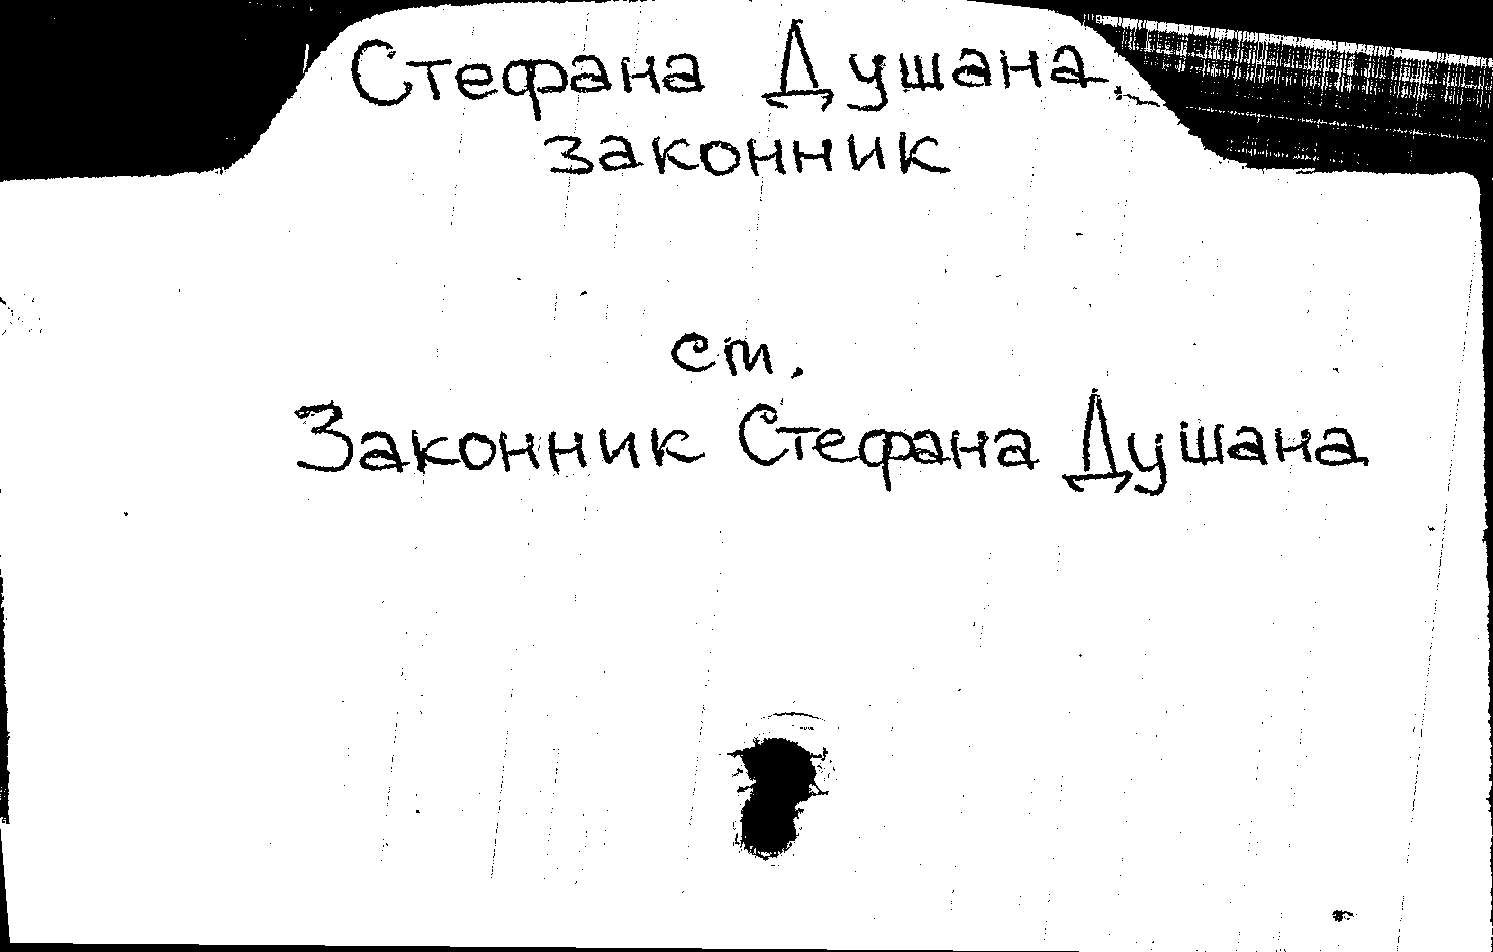 Стефана Душана
законник
ст.
Законник Стефана Душана